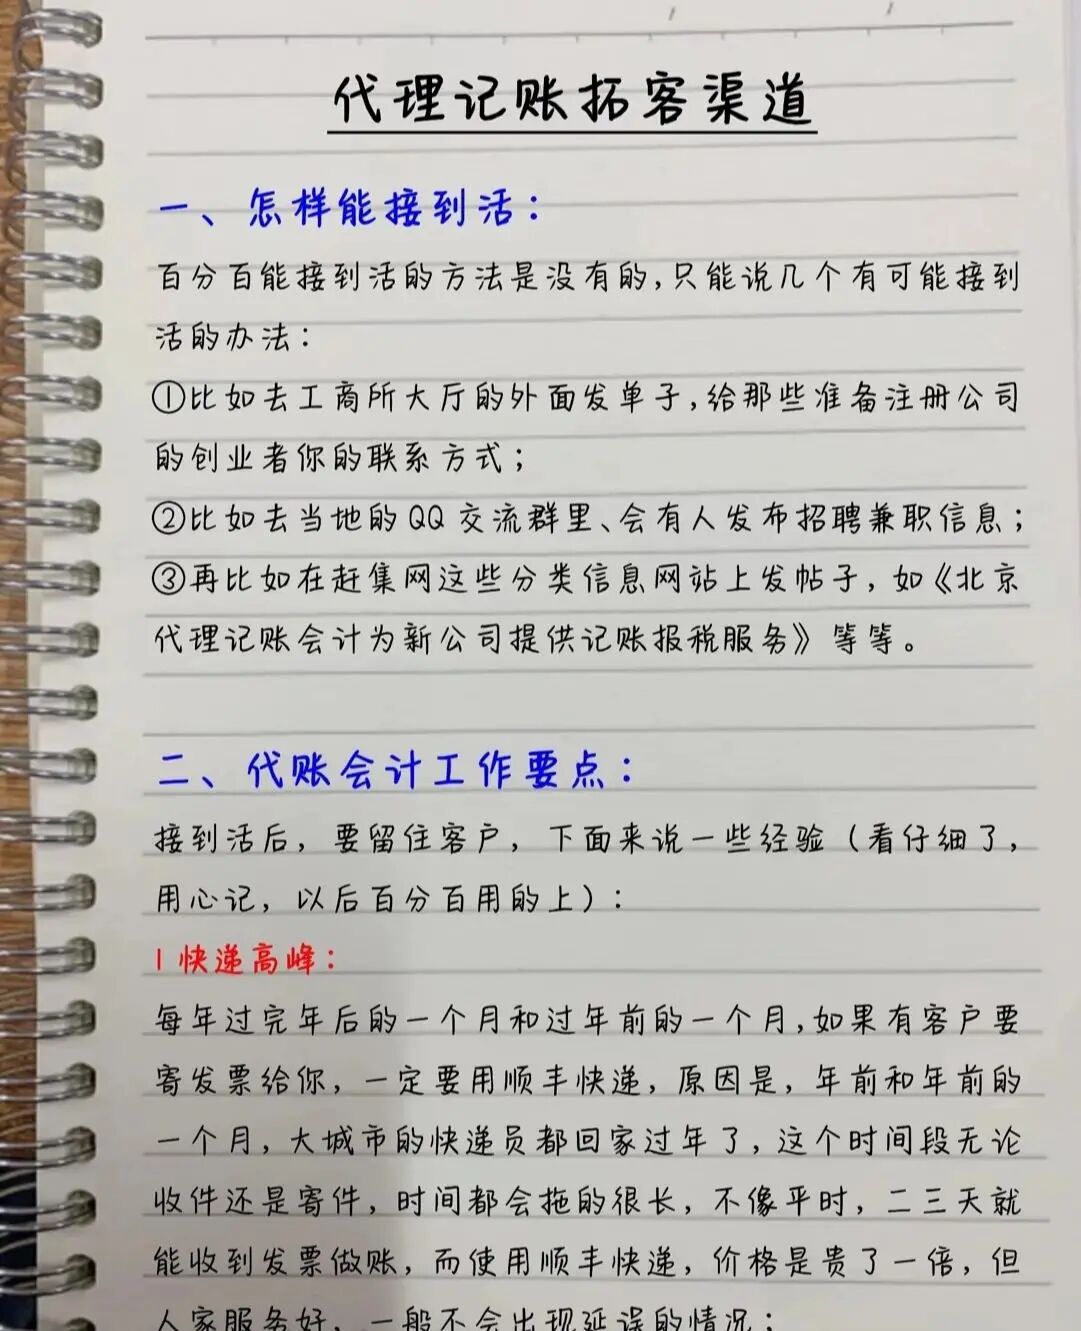 代理记账拓客渠道
一、怎样能接到活：
百分百能接到活的方法是没有的，只能说几个有可能接到
活的办法：
①比如去工商所大厅的外面发单子，给那些准备注册公司
的创业者你的联系方式；
②比如去当地的QQ交流群里、会有人发布招聘兼职信息；
③再比如在赶集网这些分类信息网站上发帖子，如《北京
代理记账会计为新公司提供记账报税服务》等等。
二、代账会计工作要点：
接到活后，要留住客户，下面来说一些经验（看仔细了，
用心记，以后百分百用的上）：
1 快递高峰：
每年过完年后的一个月和过年前的一个月，如果有客户要
寄发票给你，一定要用顺丰快递，原因是，年前和年前的
一个月，大城市的快递员都回家过年了，这个时间段无论
收件还是寄件，时间都会拖的很长，不像平时，二三天就
能收到发票做账，而使用顺丰快递，价格是贵了一倍，但
人家服务好，一般不会出现延误的情况；